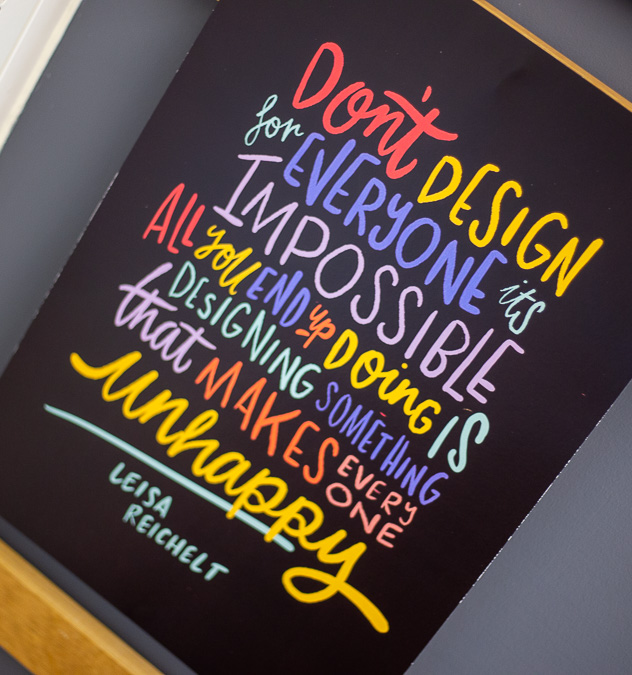 Don't DESIGN
for EVERYONE its
IMPOSSIBLE
ALL you END up DOiNG IS
DESIGNING SOMETHING
that MAKES EVERY
ONE
unhappy
LEISA
REICHELT